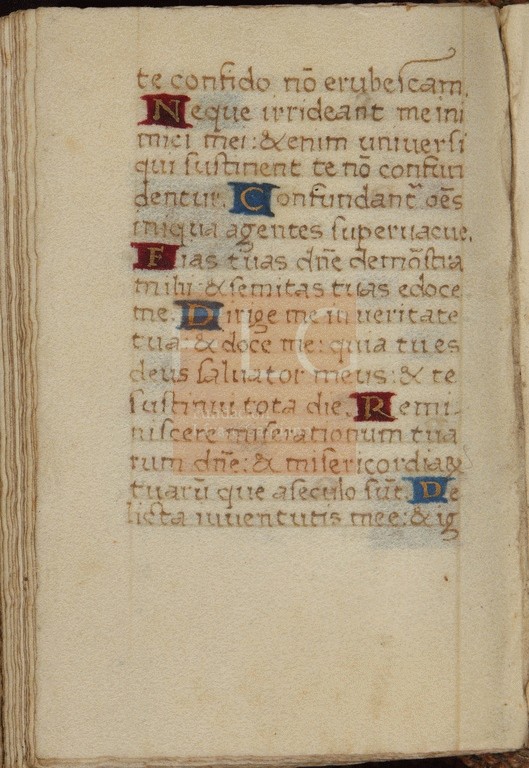 te confido nō erubescam.
Neque irrideant me ini
mici mei: & enim universi
qui sustinent te nō confun
dentur. Confundant᷑ oēs
iniqua agentes supervacue.
Fias tuas dn̄e demōstra
mihi & semitas tuas edoce
me. Dirige me in veritate
tua: & doce me: quia tu es
deus salvator meus: & te
sustinui tota die. Remi-
niscere miserationum tua
rum dn̄e: & misericordia&
tuarū que a seculo sūt. De
licta iuventutis mee: & ig